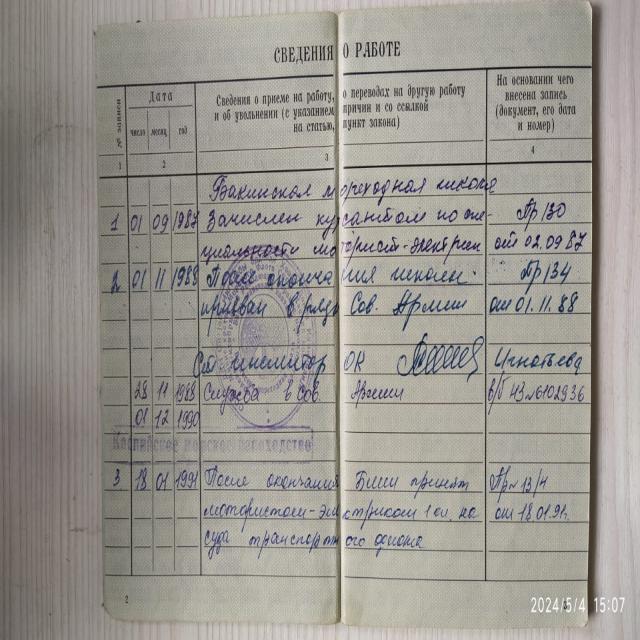 СВЕДЕНИЯ О РАБОТЕ
№ записи
Дата
число
месяц
год
Сведения о приеме на работу, о переводах на другую работу
и об увольнении (с указанием причин и со ссылкой
на статью, пункт закона)
На основании чего
внесена запись
(документ, его дата
и номер)
1 2 3 4
Бакинская мореходная школа
1 01 09 1987 Зачислен курсантом по спе- Пр 130
циальности моторист-электрик от 02.09.87
2 01 11 1988 После окончания школы Пр 134
призван в ряды Сов. Армии от 01.11.88
Ст инспектор ОК Игнатьева
28 11 1988 Служба в Сов. Армии в/б НЗ № 6102936
01 12 1990
Каспийское морское пароходство
3 18 01 1991 После окончания Бмш принят Пр № 13/4
мотористом-электриком 1 кл. на от 18.01.91.
суда транспортного флота
2
2024/5/4 15:07